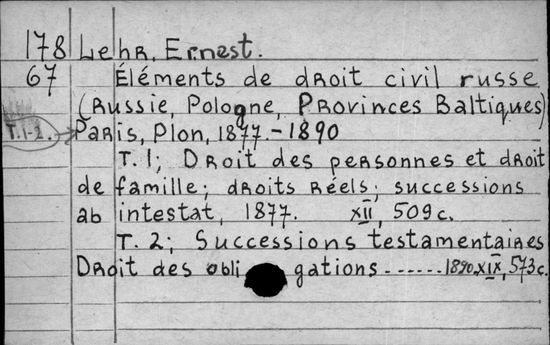 178 Lehr, Ernest.
67 Éléments de droit civil russe
(Russie, Pologne, Provinces Baltiques)
T.1-2. Paris, Plon, 1877.-1890
T. 1; Droit des personnes et droit
de famille; droits réels; successions
ab intestat, 1877. XII, 509 c.
T. 2; Successions testamentaires
Droit des obligations ------ 1890. XIX, 573 c.